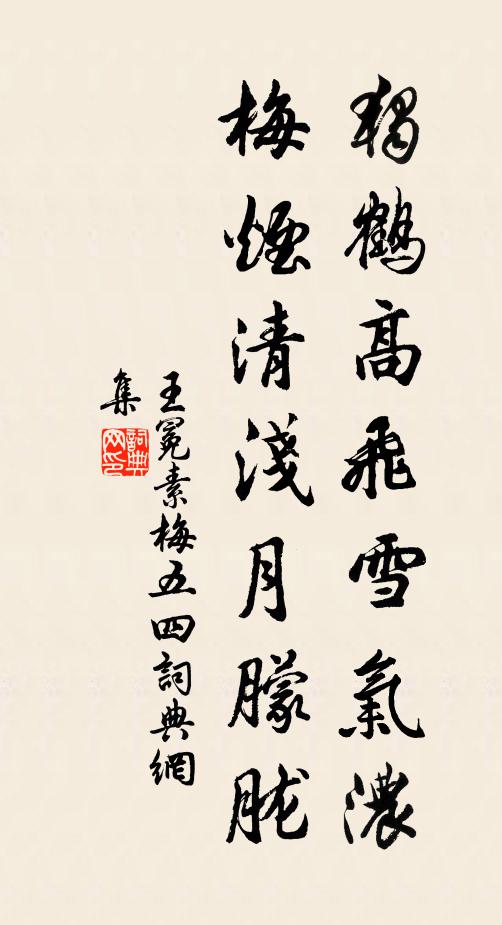 獨鶴高飛雪氣濃
梅煙清淺月朦朧
王冕素梅五四詞典網
集
詞典
网印